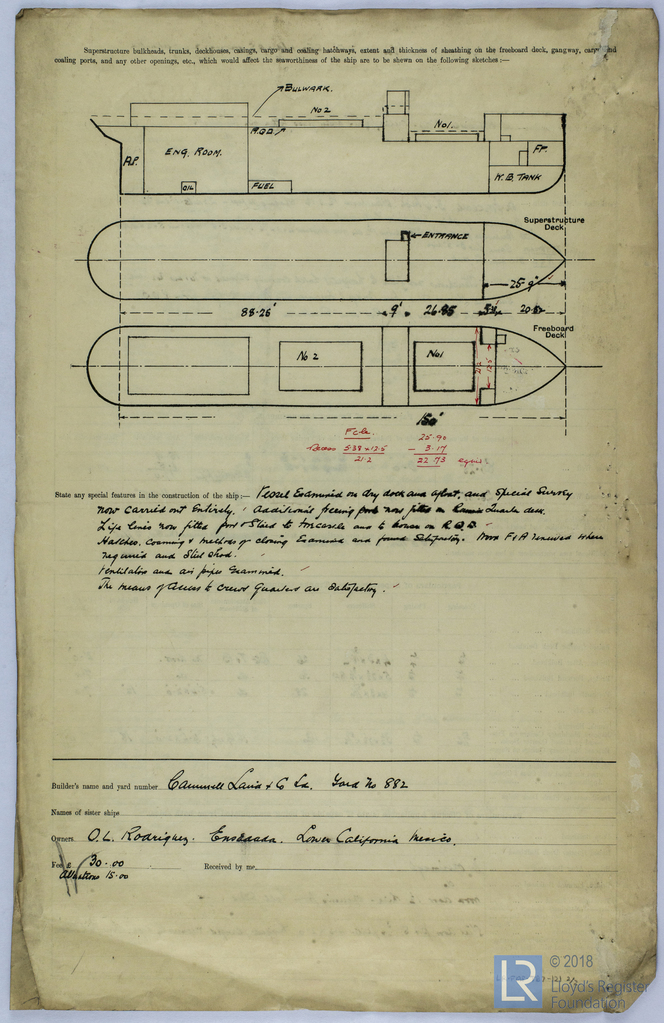 Superstructure bulkheads, trunks, deckhouses, casings, cargo and coaling hatchways, extent and thickness of sheathing on the freeboard deck, gangway, cargo and
coaling ports, and any other openings, etc., which would affect the seaworthiness of the ship are to be shewn on the following sketches:—
BULWARK.
No 2
No 1.
R.Q.D.
A.P.
ENG. ROOM.
OIL
FUEL
F.P.
W.B. TANK
Superstructure
Deck
ENTRANCE
25.9'
88.25'
9'
26.85
Freeboard
Deck
No 2
No 1
21.2
12.5
150'
Fcle.
25.90
Recess 5.38 × 12.5
- 3.17
21.2
22.73
State any special features in the construction of the ship:— Vessel Examined on dry dock and afloat, and Special Survey
now carried out Entirely. Additional freeing ports now fitted on Quarter deck.
Life lines now fitted port & Stbd to forecastle and to on R.Q.D.
Hatches, Coamings & methods of closing Examined and found Satisfactory. F & A renewed where
required and Steel Shod.
Ventilators and air pipes Examined.
The means of Access to Crews Quarters are Satisfactory.
Builder's name and yard number Cammell Laird & Co Ld. Yard No 882
Names of sister ships
Owners O.L. Rodriguez. Ensenada. Lower California Mexico.
Fee £ 30.00
Received by me
15.00
LR
© 2018
Lloyd's Register
Foundation